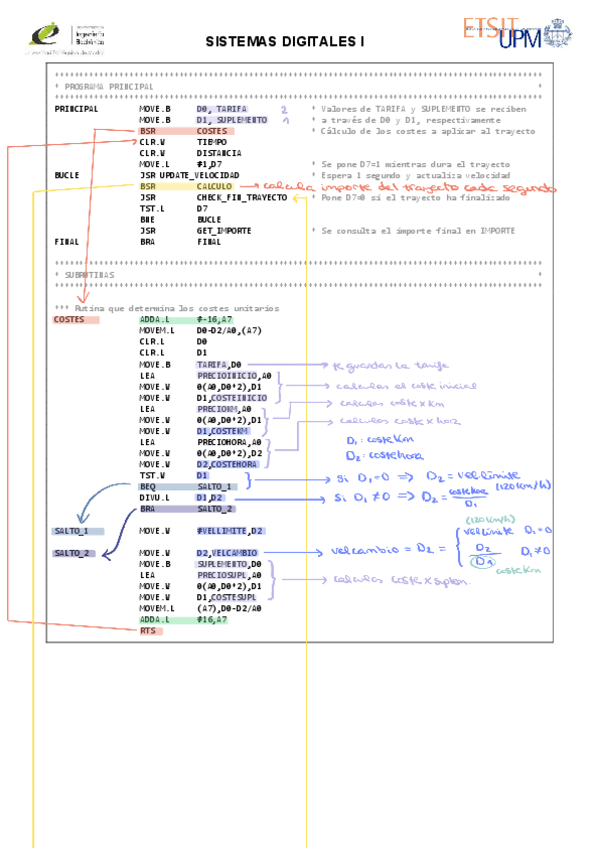 Ingeniería
Electrónica
ETSIT
UPM
SISTEMAS DIGITALES I
* PROGRAMA PRINCIPAL *
PRINCIPAL MOVE.B D0, TARIFA 2 * Valores de TARIFA y SUPLEMENTO se reciben
MOVE.B D1, SUPLEMENTO 1 * a través de D0 y D1, respectivamente
BSR COSTES * Cálculo de los costes a aplicar al trayecto
CLR.W TIEMPO
CLR.W DISTANCIA
MOVE.L #1,D7 * Se pone D7=1 mientras dura el trayecto
BUCLE JSR UPDATE_VELOCIDAD * Espera 1 segundo y actualiza velocidad
BSR CALCULO → calcula importe del trayecto cada segundo
JSR CHECK_FIN_TRAYECTO * Pone D7=0 si el trayecto ha finalizado
TST.L D7
BNE BUCLE
JSR GET_IMPORTE * Se consulta el importe final en IMPORTE
FINAL BRA FINAL
* SUBRUTINAS *
*** Rutina que determina los costes unitarios
COSTES ADDA.L #-16,A7
MOVEM.L D0-D2/A0,(A7)
CLR.L D0
CLR.L D1
MOVE.B TARIFA,D0 → se guardan la tarifa
LEA PRECIOINICIO,A0
MOVE.W 0(A0,D0*2),D1 → calculas el coste inicial
MOVE.W D1,COSTEINICIO
LEA PRECIOKM,A0 → calculas coste x km
MOVE.W 0(A0,D0*2),D1
MOVE.W D1,COSTEKM → calculas coste x hora
LEA PRECIOHORA,A0 D1: costeKm
MOVE.W 0(A0,D0*2),D2 D2: costehora
MOVE.W D2,COSTEHORA
TST.W D1 → si D1=0 ⇒ D2 = vellimite
BEQ SALTO_1 (120km/h)
DIVU.L D1,D2 → si D1 ≠ 0 ⇒ D2 = costehora / D1
BRA SALTO_2
(120km/h)
SALTO_1 MOVE.W #VELLIMITE,D2 vellimite D1=0
SALTO_2 MOVE.W D2,VELCAMBIO → velcambio = D2 = D2 / D1 D1≠0
MOVE.B SUPLEMENTO,D0 costeKm
LEA PRECIOSUPL,A0
MOVE.W 0(A0,D0*2),D1 → calculas coste x suplem.
MOVE.W D1,COSTESUPL
MOVEM.L (A7),D0-D2/A0
ADDA.L #16,A7
RTS